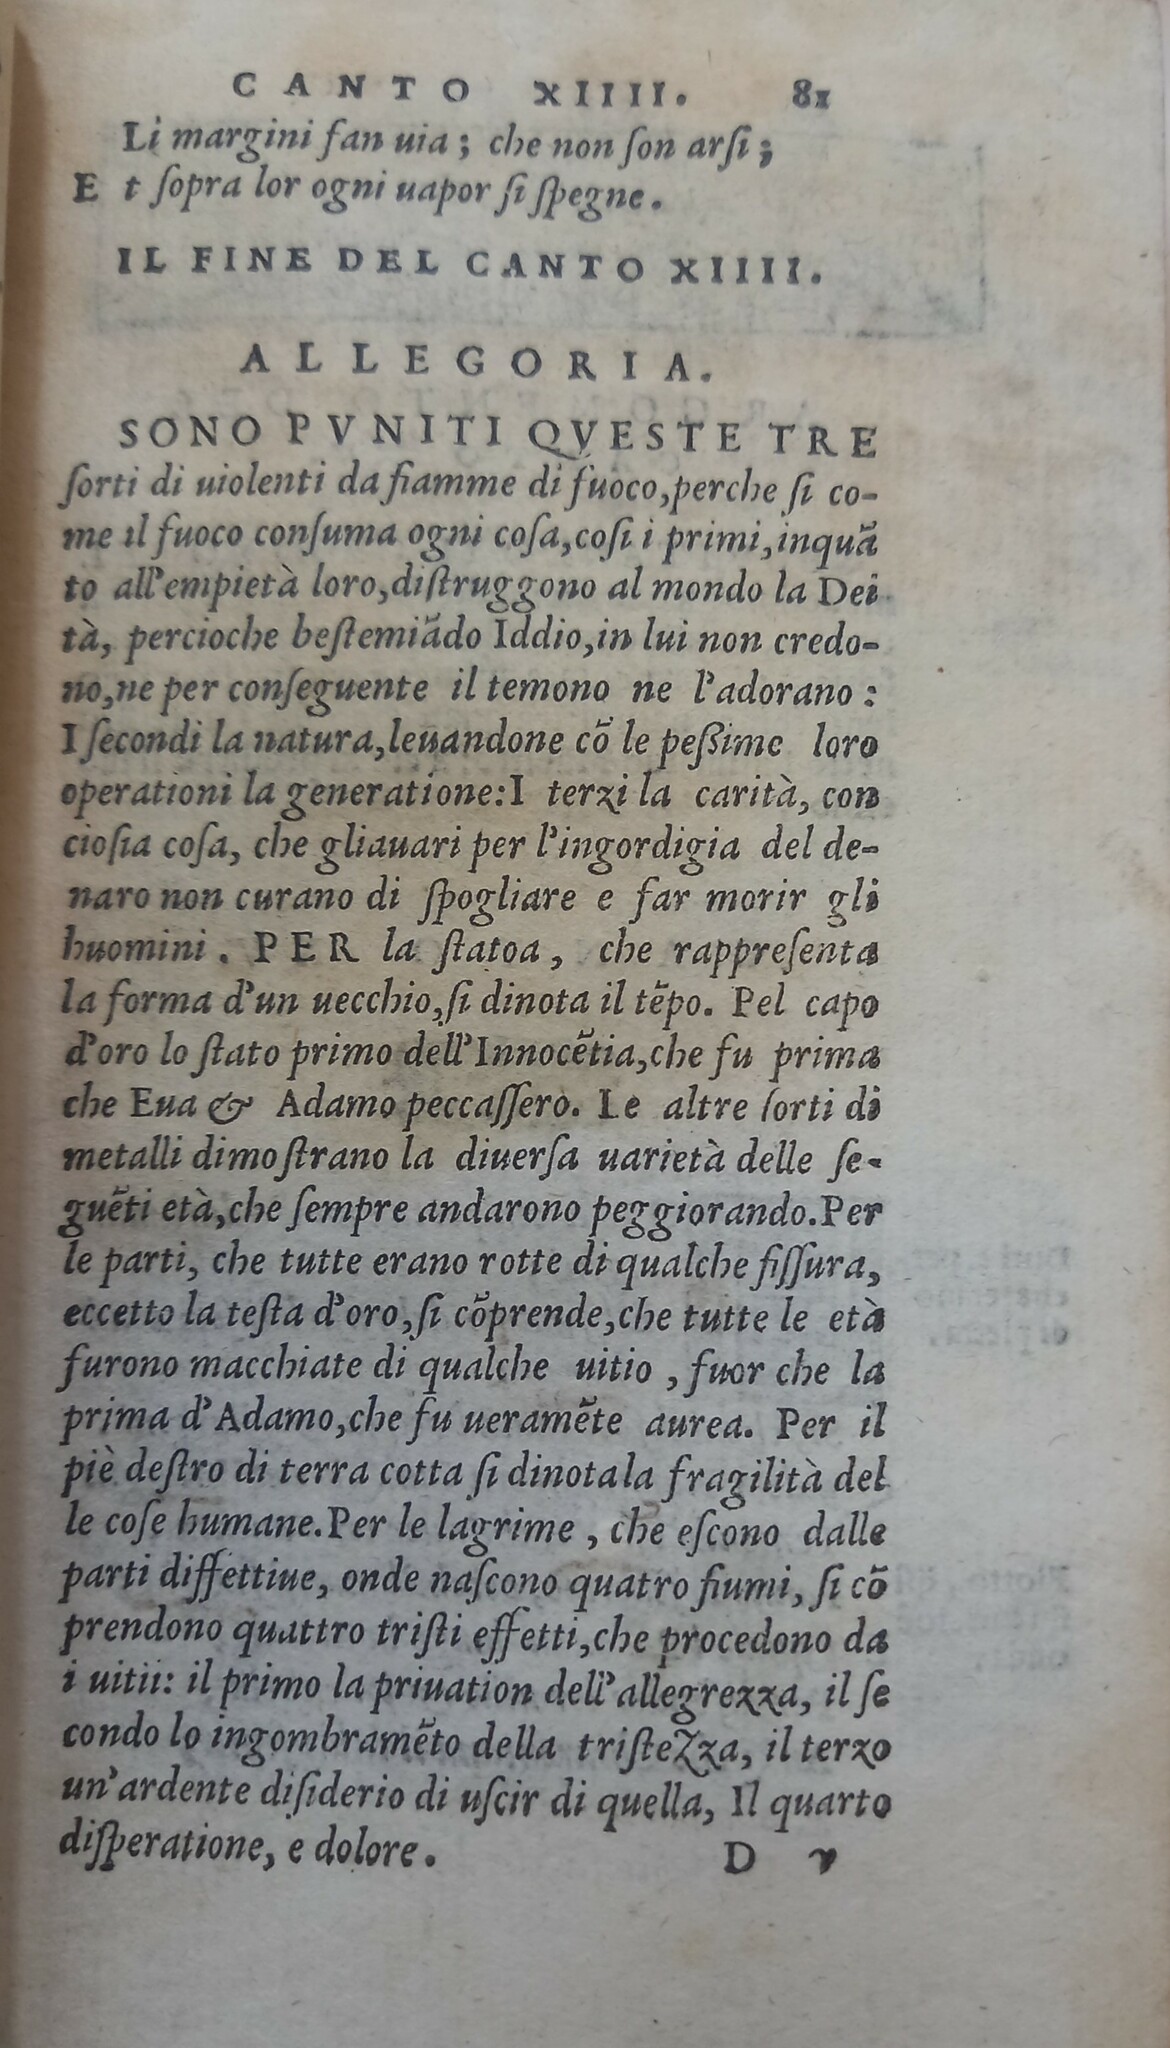 CANTO XIIII. 81
Li margini fan uia; che non ſon arſi;
E t ſopra lor ogni uapor ſi ſpegne.
IL FINE DEL CANTO XIIII.
ALLEGORIA.
SONO PVNITI QVESTE TRE
ſorti di uiolenti da fiamme di fuoco,perche ſi co-
me il fuoco conſuma ogni coſa,coſi i primi,inquã
to all'empietà loro,diſtruggono al mondo la Dei
tà, percioche beſtemiãdo Iddio,in lui non credo-
no,ne per conſeguente il temono ne l'adorano:
I ſecondi la natura,leuandone cõ le peßime loro
operationi la generatione:I terzi la carità, con
cioſia coſa, che gliauari per l'ingordigia del de-
naro non curano di ſpogliare e far morir gli
huomini. PER la ſtatoa, che rappreſenta
la forma d'un uecchio,ſi dinota il tẽpo. Pel capo
d'oro lo ſtato primo dell'Innocẽtia,che fu prima
che Eua & Adamo peccaſſero. Le altre ſorti di
metalli dimoſtrano la diuerſa uarietà delle ſe-
guẽti età,che ſempre andarono peggiorando.Per
le parti, che tutte erano rotte di qualche fiſſura,
eccetto la teſta d'oro,ſi cõprende,che tutte le età
furono macchiate di qualche uitio, fuor che la
prima d'Adamo,che fu ueramẽte aurea. Per il
piè deſtro di terra cotta ſi dinotala fragilità del
le coſe humane.Per le lagrime, che eſcono dalle
parti diffettiue, onde naſcono quatro fiumi, ſi cõ
prendono quattro triſti effetti,che procedono da
i uitii: il primo la priuation dell'allegrezza, il ſe
condo lo ingombramẽto della triſteZza, il terzo
un'ardente diſiderio di uſcir di quella, Il quarto
diſperatione, e dolore. D v